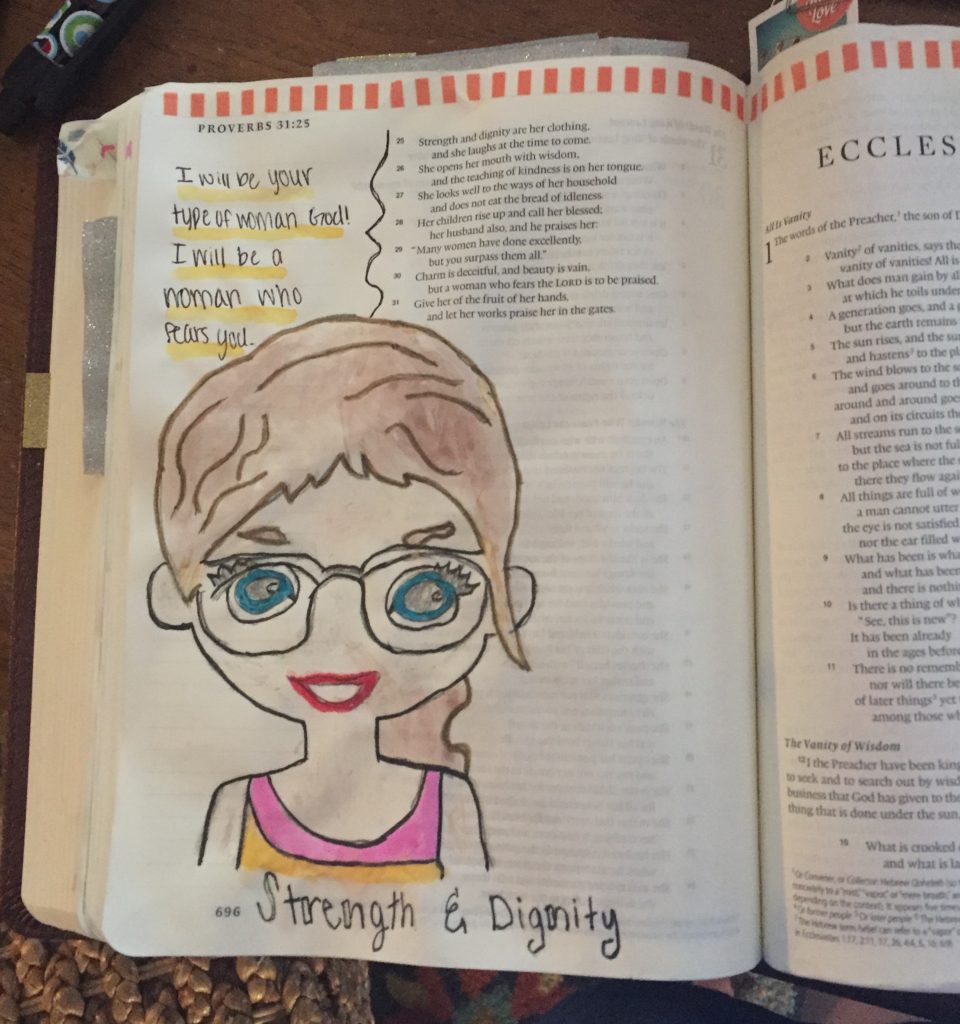 Love
PROVERBS 31:25
I will be your
type of woman God!
I will be a
woman who
fears you.
25 Strength and dignity are her clothing,
and she laughs at the time to come.
26 She opens her mouth with wisdom,
and the teaching of kindness is on her tongue.
27 She looks well to the ways of her household
and does not eat the bread of idleness.
28 Her children rise up and call her blessed;
her husband also, and he praises her:
29 "Many women have done excellently,
but you surpass them all."
30 Charm is deceitful, and beauty is vain,
but a woman who fears the LORD is to be praised.
31 Give her of the fruit of her hands,
and let her works praise her in the gates.
696 Strength & Dignity
ECCLES
All Is Vanity
1 The words of the Preacher,1 the son of
2 Vanity2 of vanities, says
vanity of vanities! All is
3 What does man gain by
at which he toils under
4 A generation goes, and a
but the earth remains
5 The sun rises, and the
and hastens3 to the
6 The wind blows to the
and goes around to
around and around
and on its circuits
7 All streams run to the
but the sea is not
to the place where the
there they flow
8 All things are full of
a man cannot utter
the eye is not satisfied
nor the ear filled
9 What has been is
and what has been
and there is
10 Is there a thing of
"See, this is new"?
It has been already
in the ages before
11 There is no
nor will there be
of later things5 yet
among those
The Vanity of Wisdom
12 I the Preacher have been
to seek and to search out by
business that God has given to the
thing that is done under the sun,
15 What is crooked
and what is